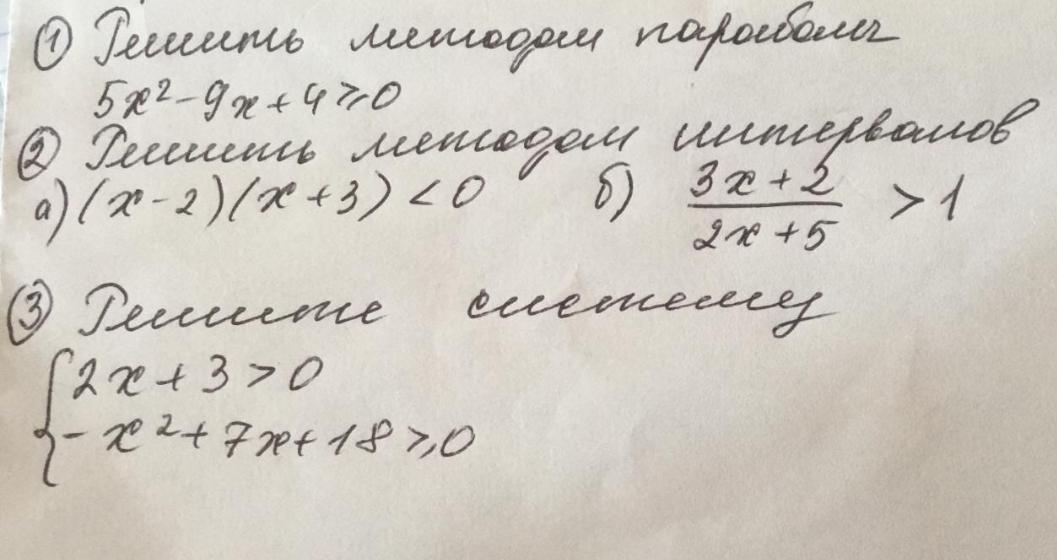 ① Решить методом параболы
5x² - 9x + 4 ⩾ 0
② Решить методом интервалов
а) (x - 2)(x + 3) < 0 б) (3x + 2)/(2x + 5) > 1
③ Решите систему
{ 2x + 3 > 0
- x² + 7x + 18 ⩾ 0